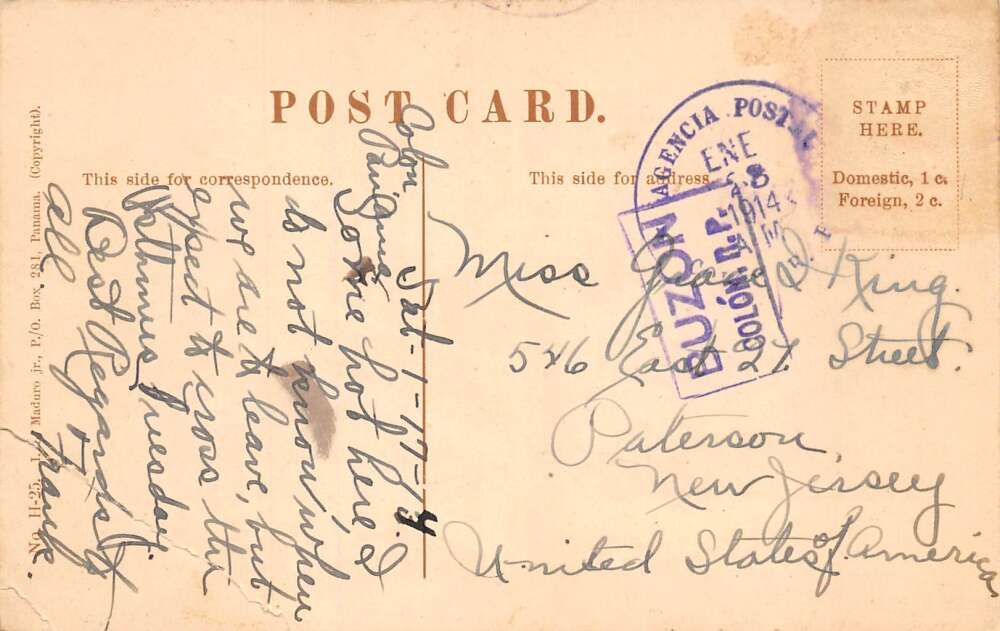 POST CARD.
This side for correspondence.
This side for address.
STAMP
HERE.
Domestic, 1 c.
Foreign, 2 c.
No. II-25. Maduro jr., P./O. Box, 281, Panama. (Copyright).
AGENCIA POSTAL
ENE
1914
A M
BUZON
COLÓN. R.P.
Colon
Sat-1-17-14
Some hot here I
do not know when
we are to leave, but
expect to cross the
Isthmus Tuesday.
Best Regards to
all Frank.
Miss Grace King.
546 East 27 Street.
Paterson
New Jersey
United States of America